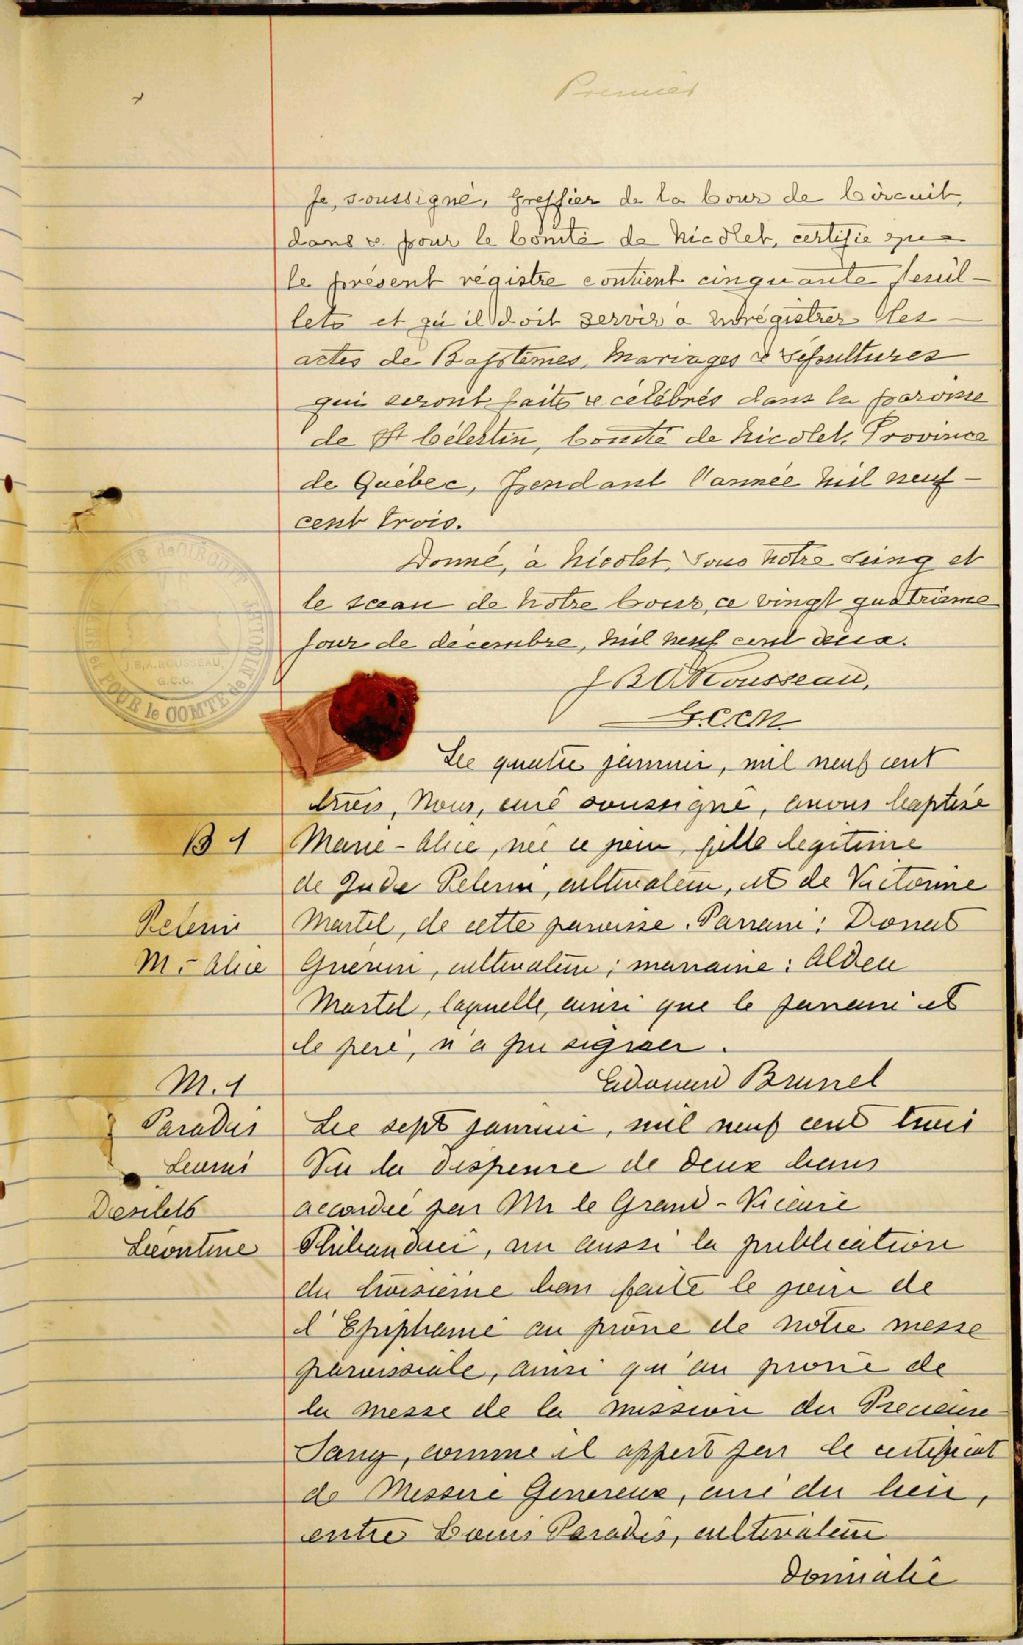 Premier
Je, soussigné, Greffier de la Cour de Circuit,
dans & pour le Comté de Nicolet, certifie que
le présent régistre contient cinquante feuil-
lets et qu'il doit servir à enrégistrer les
actes de Baptêmes, Mariages & Sépultures
qui seront faits & célébrés dans la paroisse
de St Célestin, Comté de Nicolet, Province
de Québec, pendant l'année mil neuf-
cent trois.
Donné, à Nicolet, sous notre seing et
le sceau de notre Cour, ce vingt quatrième
jour de décembre, mil neuf cent deux.
COUR de CIRCUIT
DANS et POUR le COMTÉ de NICOLET
J.B.A. ROUSSEAU
G.C.C.
J B A Rousseau,
G.C.C.N.
Le quatre janvier, mil neuf cent
trois, Nous, curé soussigné, avons baptisé
B 1
Marie-Alice, née ce jour, fille légitime
de Jude Pelerin, cultivateur, et de Victorine
Pelerin
Martel, de cette paroisse. Parrain: Donat
M.-Alice
Guérin, cultivateur; marraine: Aldea
Martel, laquelle, ainsi que le parrain et
le père, n'a pu signer.
Edouard Brunel
M. 1
Paradis
Le sept janvier, mil neuf cent trois
Louis
Vu la dispense de deux bans
Desilets
accordée par Mr le Grand-Vicaire
Léontine
Thibaudier, vu aussi la publication
du troisième ban faite le jour de
l'Epiphanie au prône de notre messe
paroissiale, ainsi qu'au prone de
la messe de la mission du Précieux-
Sang, comme il appert par le certificat
de Messire Genereux, curé du lieu,
entre Louis Paradis, cultivateur
domicilié